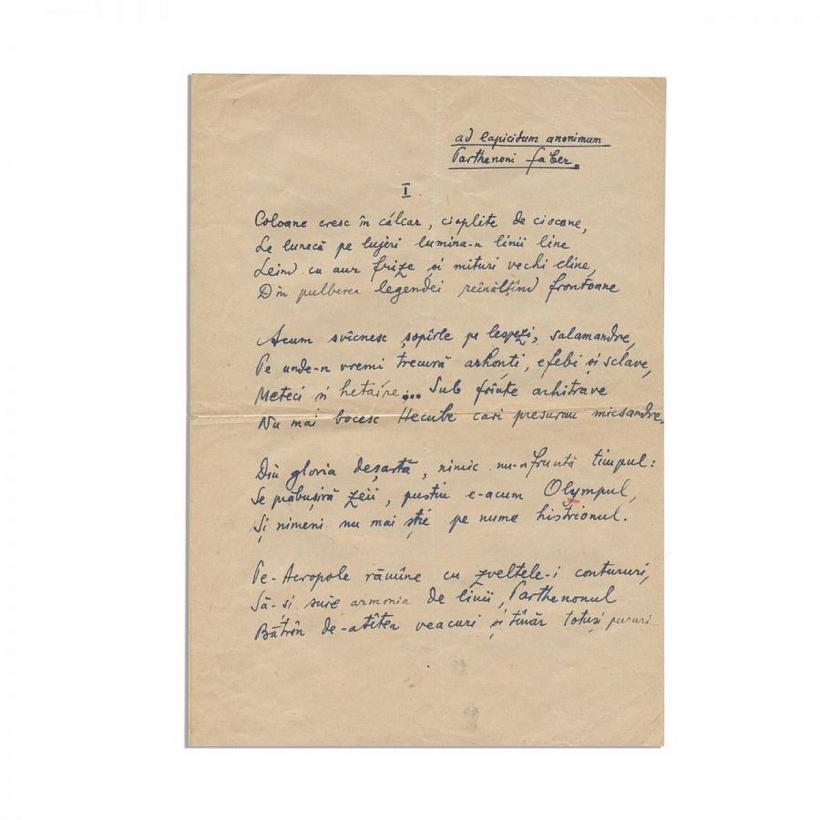 ad lapicidum anonimum
Parthenoni faber.
I
Coloane cresc în calcar, cioplite de ciocane,
Le lunecă pe lujeri lumina-n linii line
Leind cu aur frize și mituri vechi eline,
Din pulberea legendei reînălțind frontoane
Acum svîcnesc șopîrle pe lespezi, salamandre,
Pe unde-n vremi trecură arhonți, efebi și sclave,
Meteci și hetaire... Sub frînte arhitrave
Nu mai bocesc Hecube cari presurau micsandre.
Din gloria deșartă, nimic nu-nfruntă timpul:
Se prăbușiră zeii, pustiu e-acum Olympul,
Și nimeni nu mai știe pe nume histrionul.
Pe-Acropole rămîne cu zveltele-i contururi,
Să-și suie armonia de linii, Parthenonul
Bătrîn de-atîtea veacuri și tînăr totuși pururi...